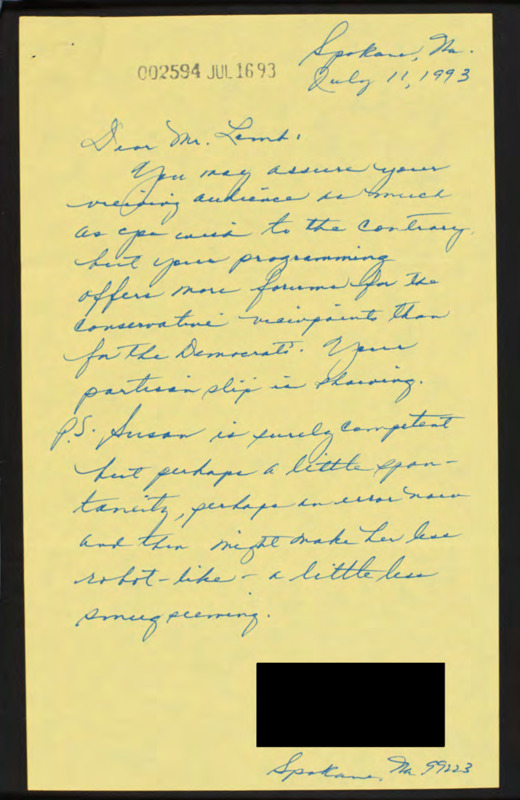 Spokane, Wa.
002594 JUL 16 93
July 11, 1993
Dear Mr. Lamb:
You may assure your
viewing audience as much
as you wish to the contrary
but your programming
offers more forums for the
conservative viewpoints than
for the Democrats. Your
partisan slip is showing.
P.S. Susan is surely competent
but perhaps a little spon-
taneity, perhaps an error now
and then might make her less
robot-like - a little less
smug seeming.
Spokane, Wa 99223